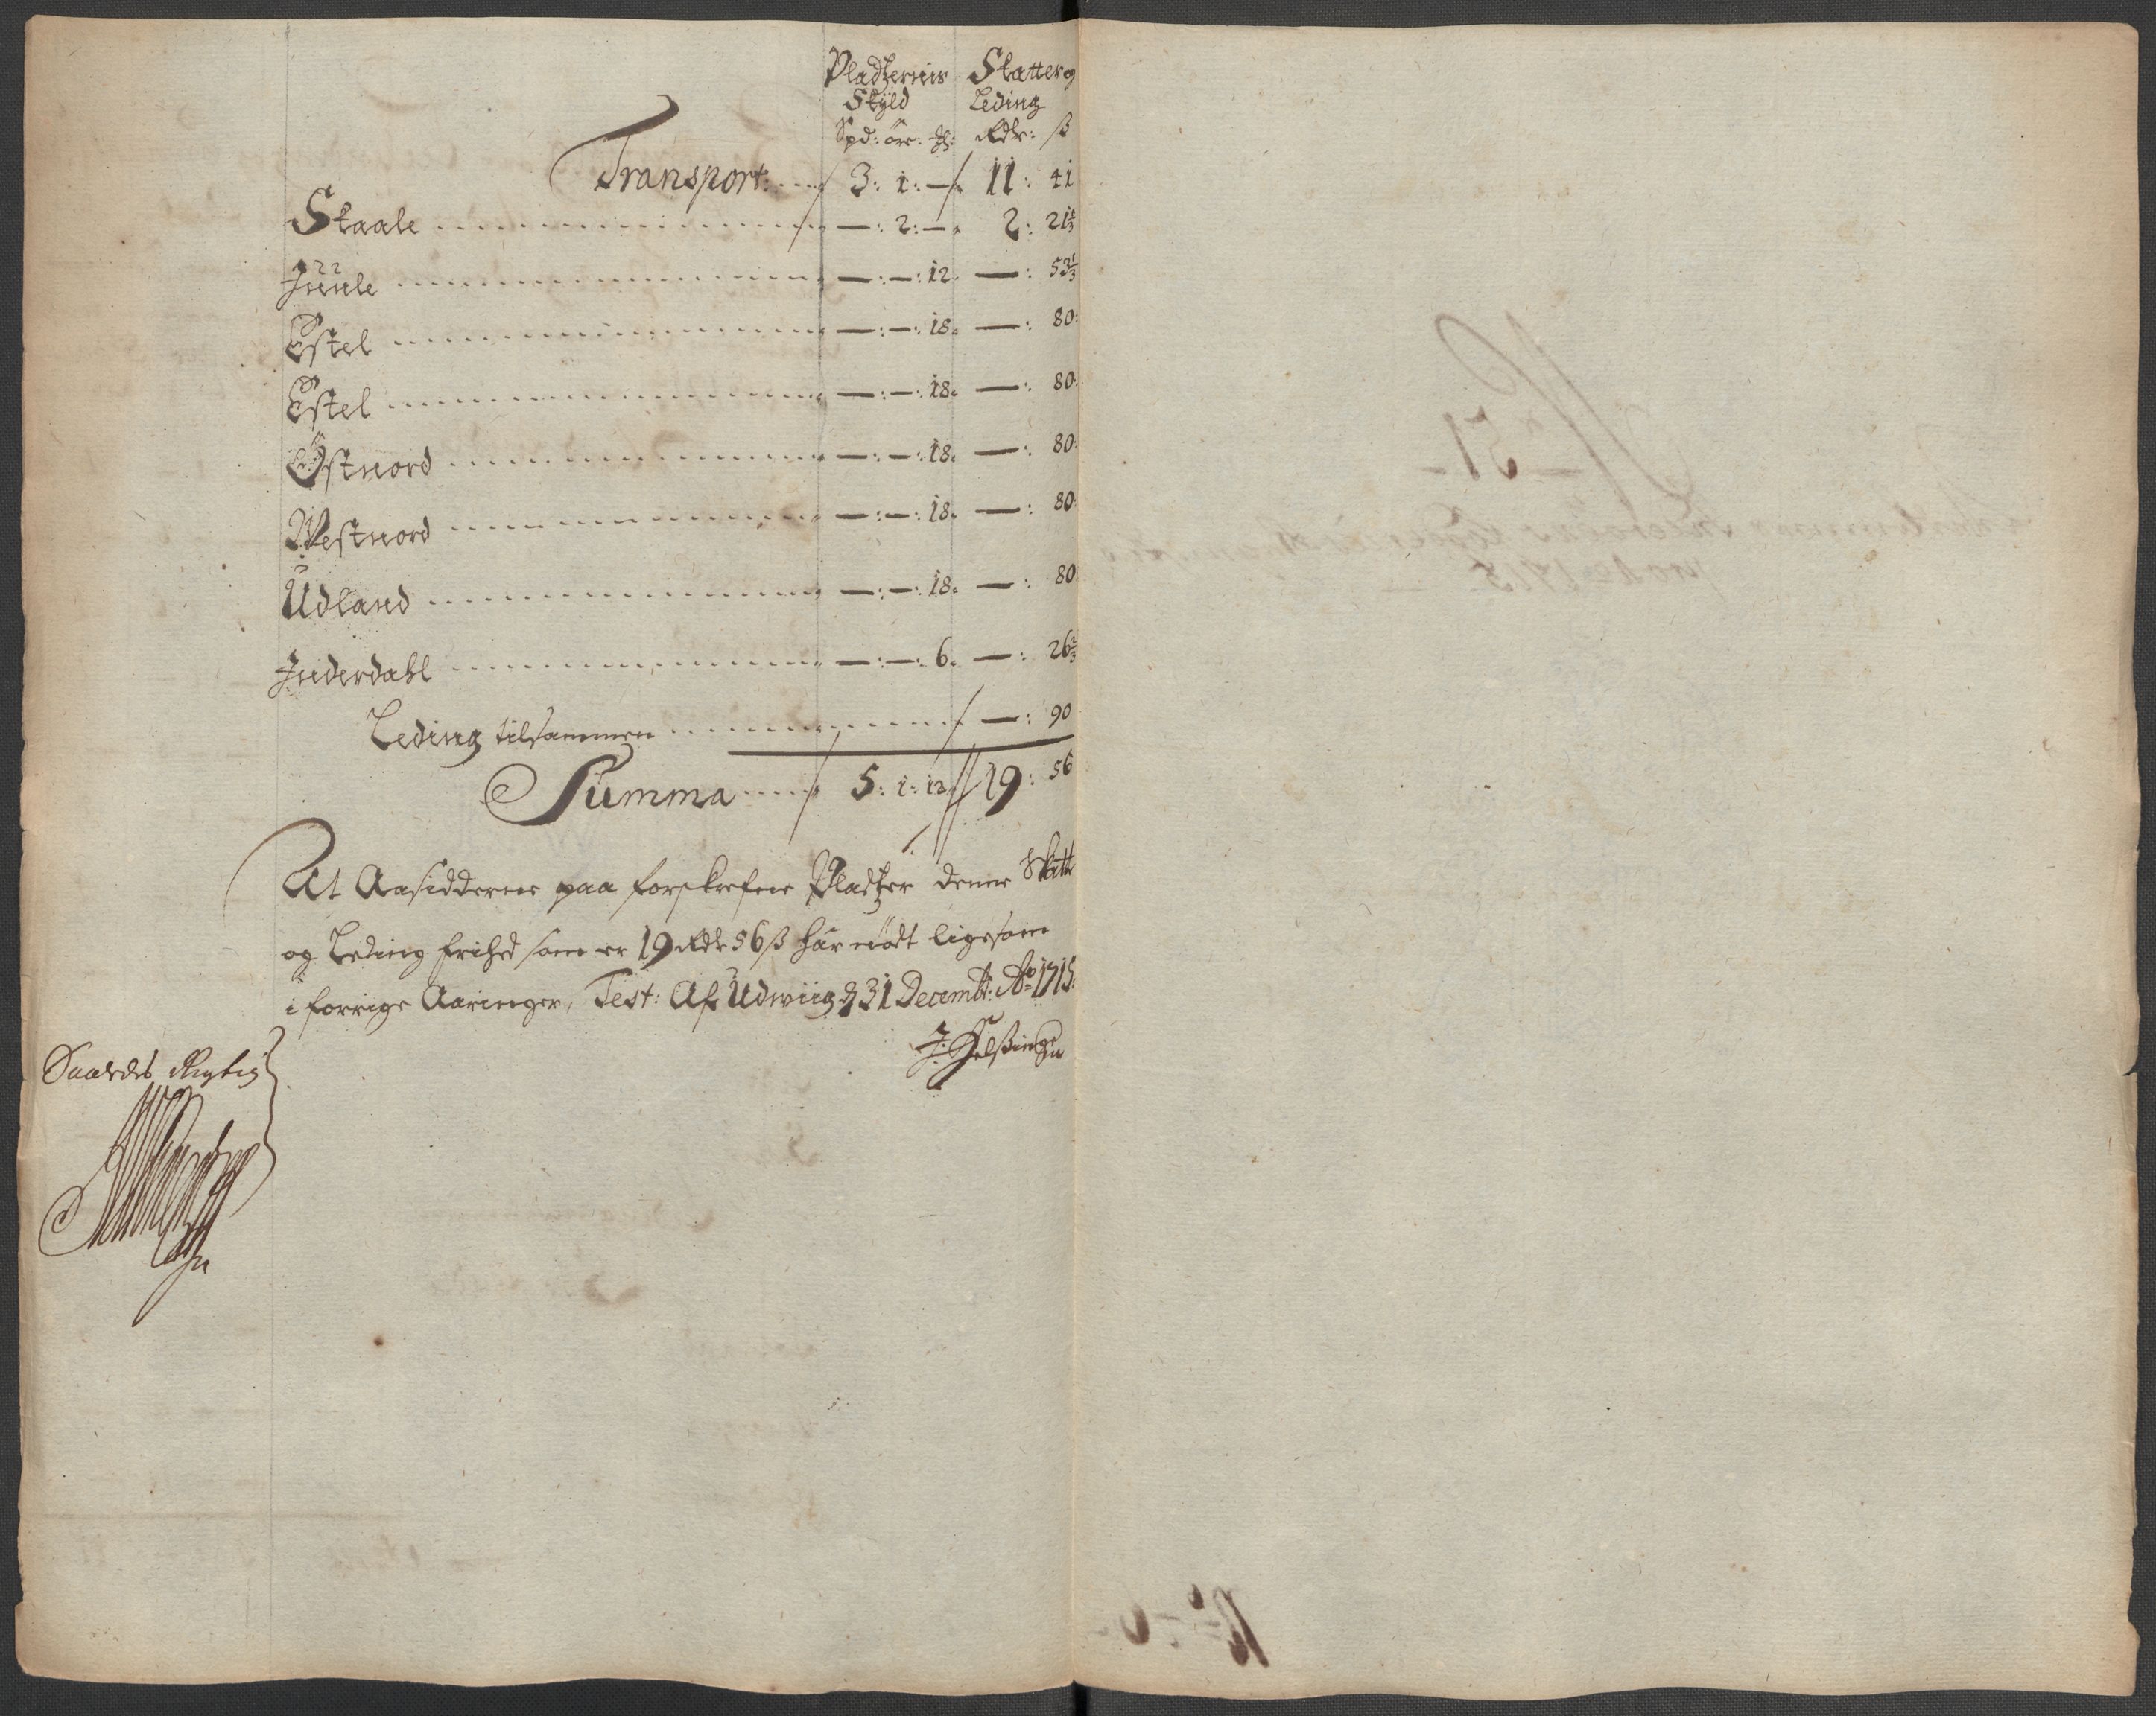 Pladzernis Skatter og
Skyld Leding
Spd: ører: Rdr: ß
Transport: 3: 1: — 11: 41
Skaale — : 2: — 2: 21 1/3
Juule — : — : 12 — : 53 1/3
Estel — : — : 18 — : 80
Estel — : — : 18 — : 80
Østnord — : — : 18 — : 80
Westnord — : — : 18 — : 80
Udland — : — : 18 — : 80
Inderdahl — : — : 6 — : 26 2/3
Leding tilsammen — : 90
Summa 5: 1: 12 19: 56
At Aasidderne paa forskrefne Pladzer denne Skatte
og Leding frihed som er 19 Rdr 56 ß har nødt ligesom
i forrige Aaringer, Test: Af Udwiig d 31 Decembr: Ao 1715
Saaledes Rigtig